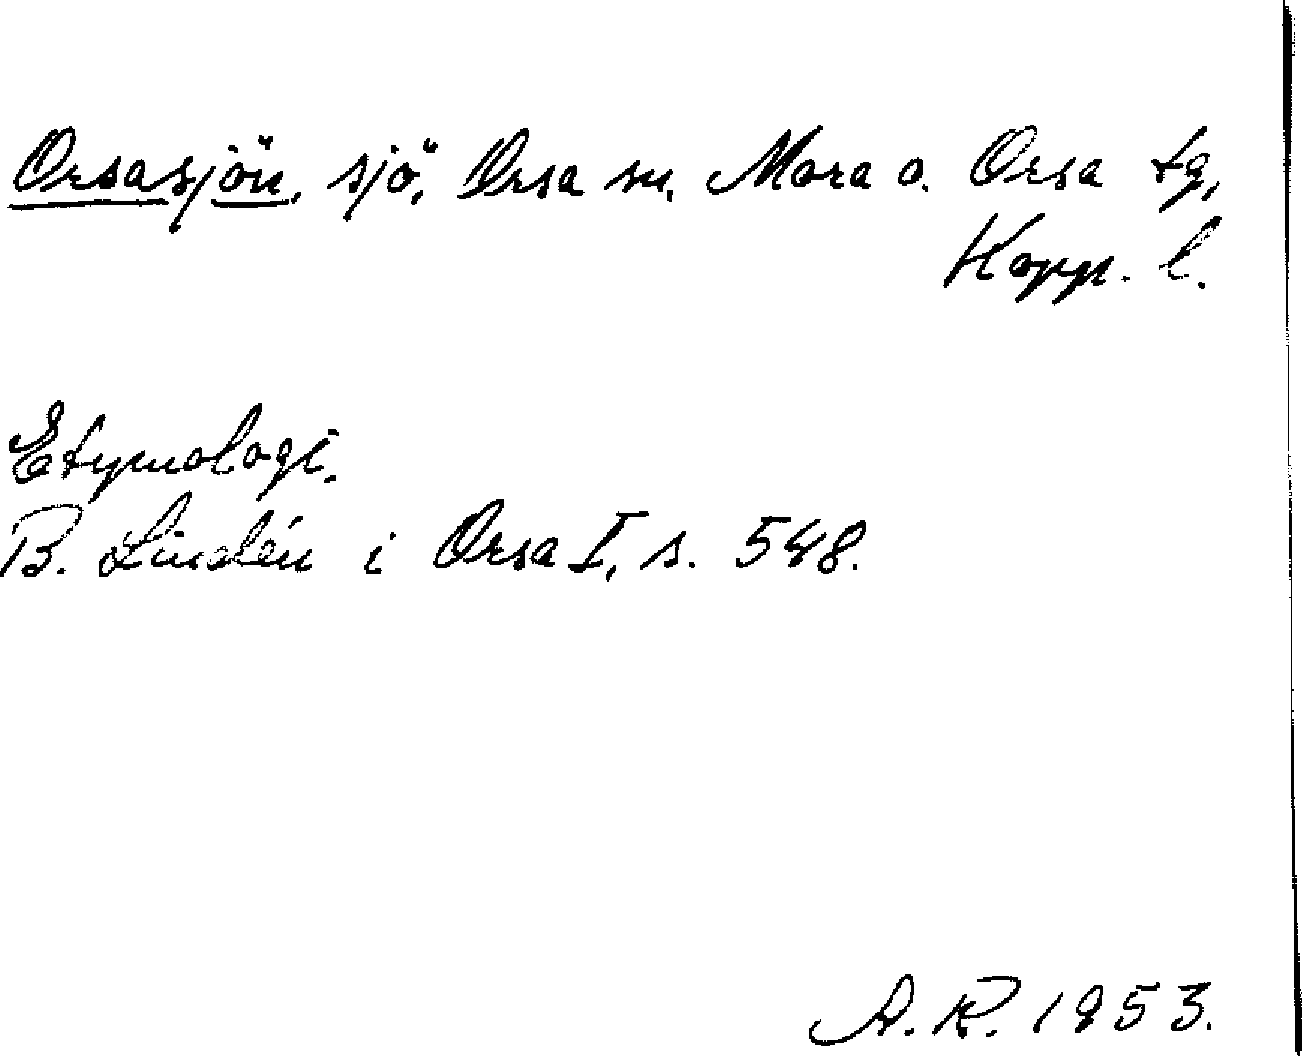 Orsasjön, sjö, Orsa sn, Mora o. Orsa tg,
Kopp. l.
Etymologi.
B. Lindén i Orsa I, s. 548.
A. R. 1953.